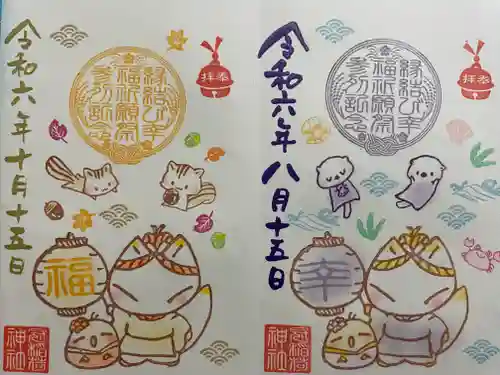 令和六年十月十五日
縁結び幸
福祈願祭
参列記念
奉拝
福
稲荷
神社
令和六年八月十五日
縁結び幸
福祈願祭
参列記念
奉拝
幸
稲荷
神社